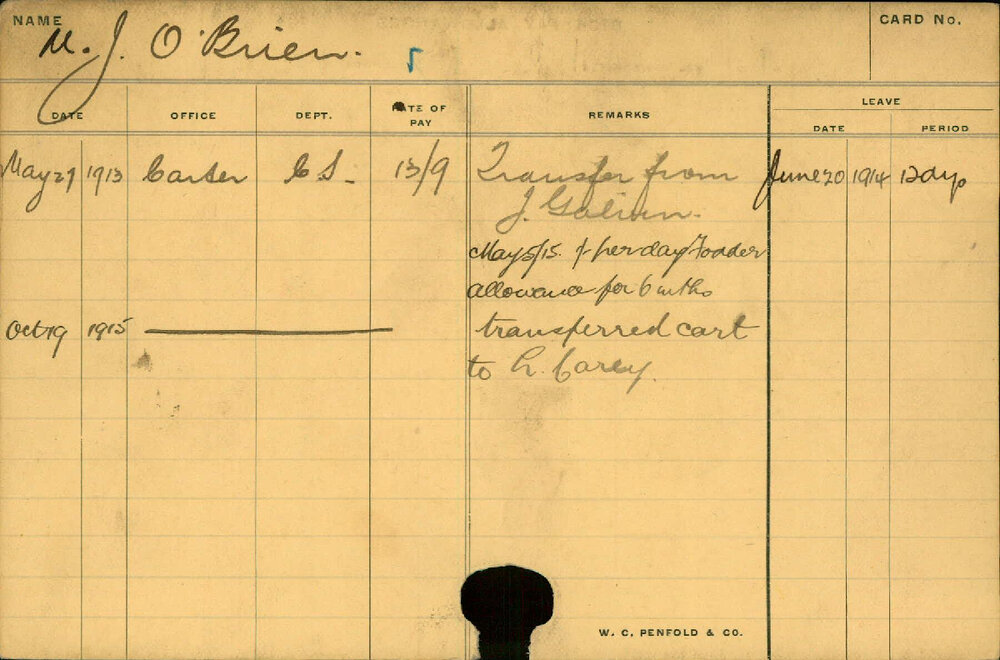 NAME
M. J. O'Brien.
CARD No.
DATE OFFICE DEPT. RATE OF PAY REMARKS LEAVE
DATE PERIOD
May 29 1913 Carter C S - 13/9 Transfer from June 20 1914 12 dys
J. Galvin.
May 5/15. 1/- per day Fodder
allowance for 6 mths
Oct 19 1915 transferred cart
to L. Carey.
W. C. PENFOLD & CO.